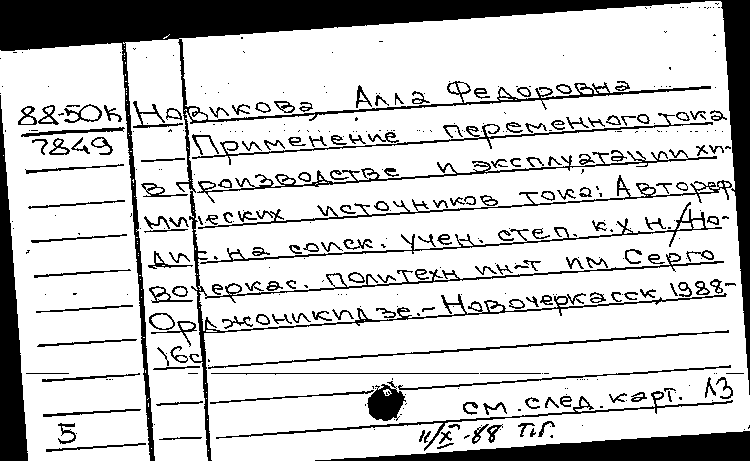 88-50К Новикова, Алла Федоровна
7849 Применение переменного тока
в производстве и эксплуатации хи-
мических источников тока: Автореф.
дис. на соиск. учен. степ. к.х.н./Но-
вочеркас. политехн ин-т им Серго
Орджоникидзе.-Новочеркасск, 1988-
16с.
см. след. карт.
5